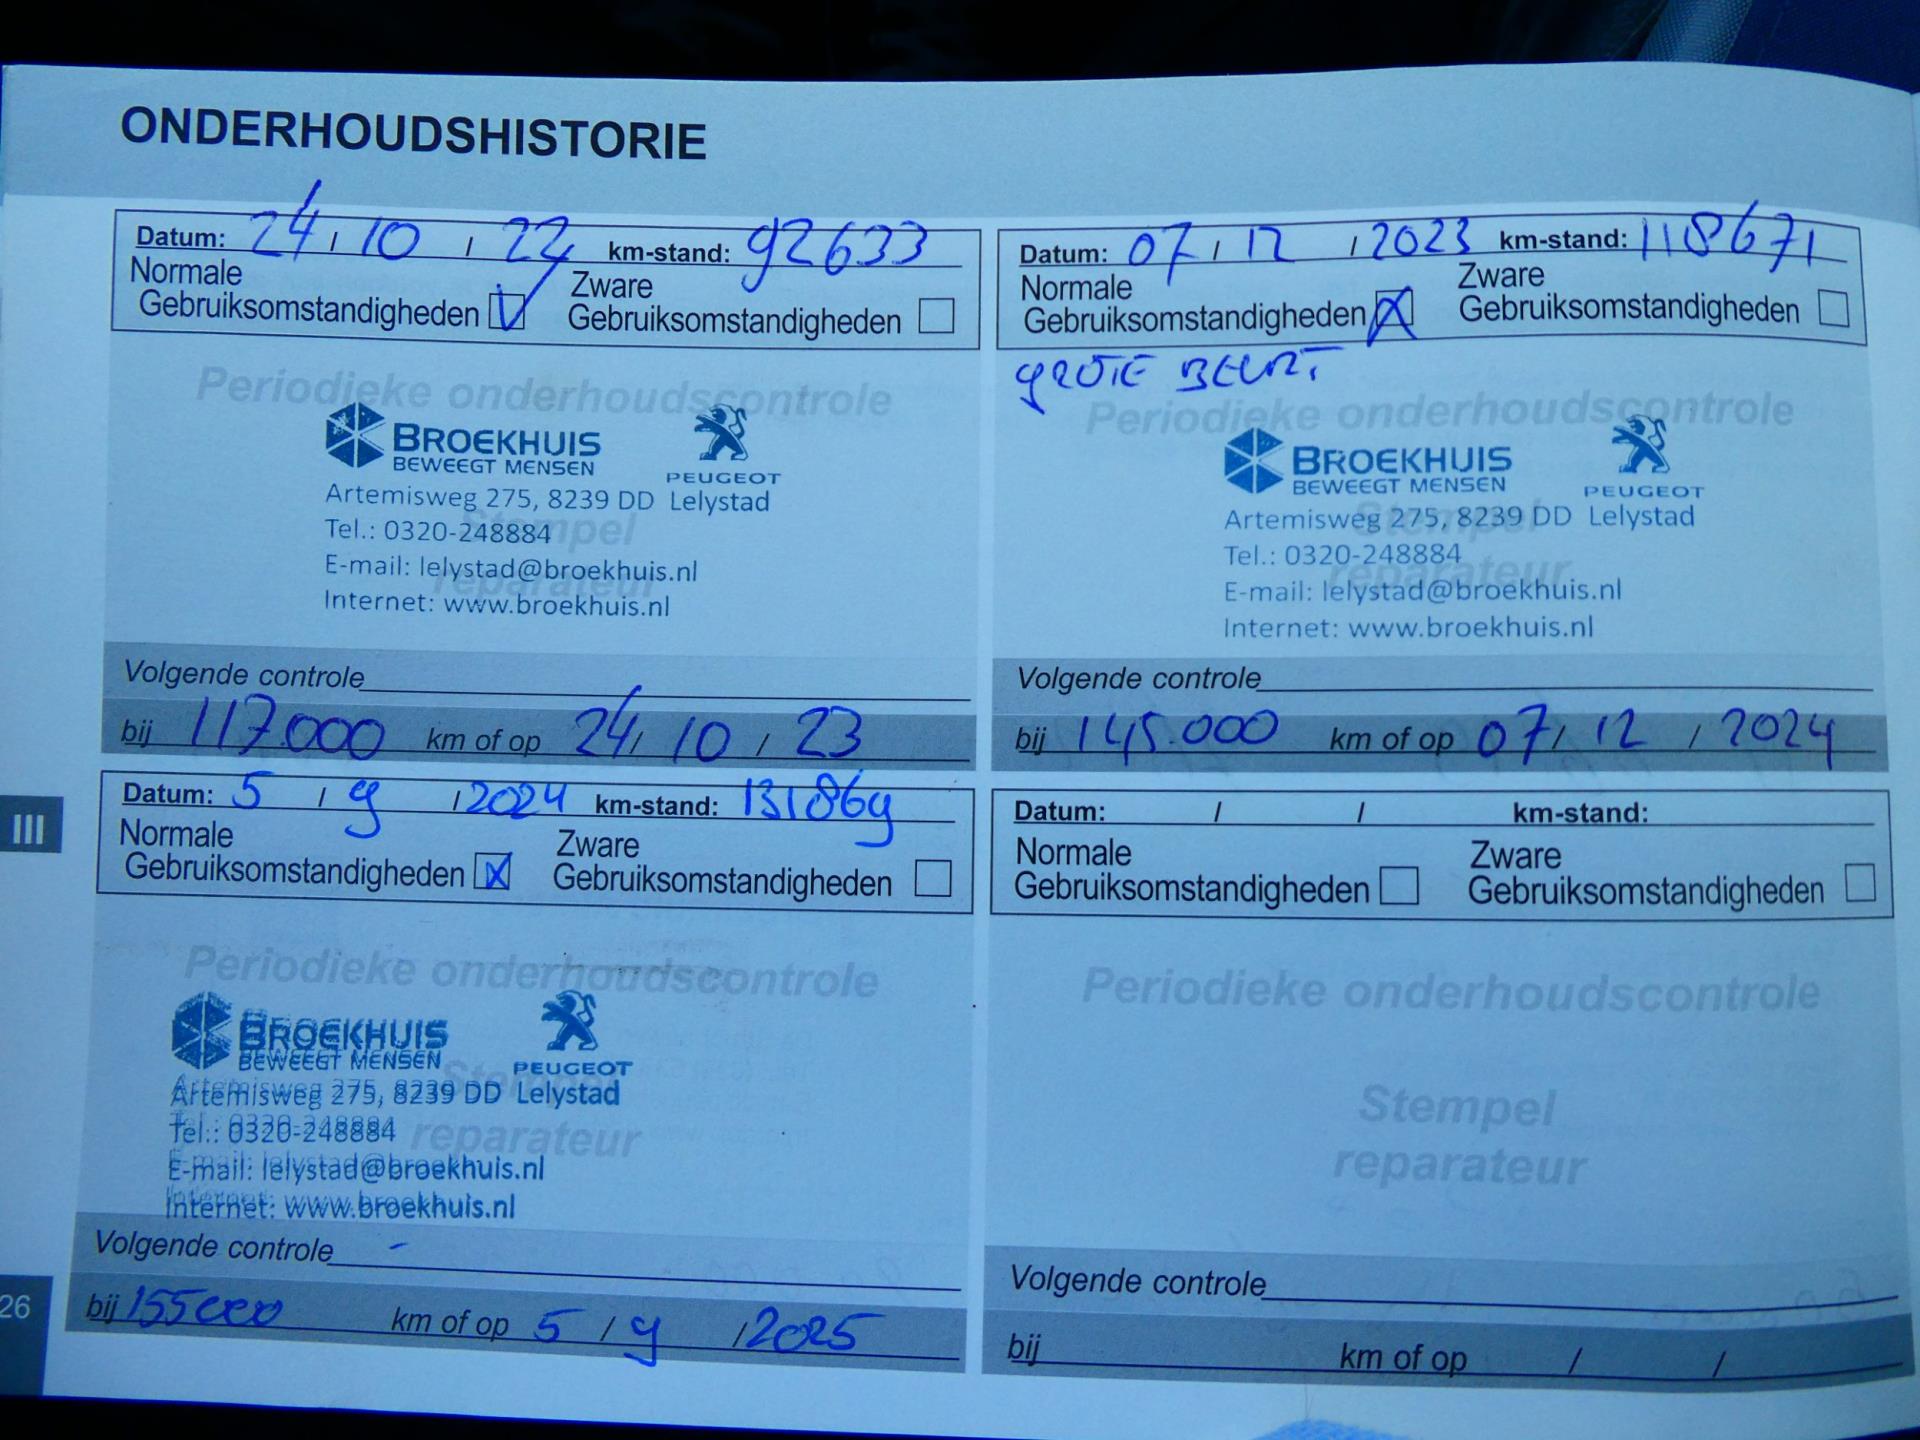 ONDERHOUDSHISTORIE
Datum: 24 / 10 / 22 km-stand: 92633
Normale Gebruiksomstandigheden Zware Gebruiksomstandigheden
Periodieke onderhoudscontrole
BROEKHUIS
BEWEEGT MENSEN PEUGEOT
Artemisweg 275, 8239 DD Lelystad
Stempel
Tel.: 0320-248884
E-mail: lelystad@broekhuis.nl
reparateur
Internet: www.broekhuis.nl
Volgende controle
bij 117.000 km of op 24 / 10 / 23
Datum: 07 / 12 / 2023 km-stand: 118671
Normale Gebruiksomstandigheden Zware Gebruiksomstandigheden
GROTE BEURT
Periodieke onderhoudscontrole
BROEKHUIS
BEWEEGT MENSEN PEUGEOT
Artemisweg 275, 8239 DD Lelystad
Stempel
Tel.: 0320-248884
reparateur
E-mail: lelystad@broekhuis.nl
Internet: www.broekhuis.nl
Volgende controle
bij 145.000 km of op 07 / 12 / 2024
III
Datum: 5 / 9 / 2024 km-stand: 131869
Normale Gebruiksomstandigheden Zware Gebruiksomstandigheden
Periodieke onderhoudscontrole
BROEKHUIS
BEWEEGT MENSEN PEUGEOT
Stempel
Artemisweg 275, 8239 DD Lelystad
Tel.: 0320-248884
reparateur
E-mail: lelystad@broekhuis.nl
Internet: www.broekhuis.nl
Volgende controle -
bij 155000 km of op 5 / 9 / 2025
Datum: / / km-stand:
Normale Gebruiksomstandigheden Zware Gebruiksomstandigheden
Periodieke onderhoudscontrole
Stempel
reparateur
Volgende controle
bij km of op / /
26